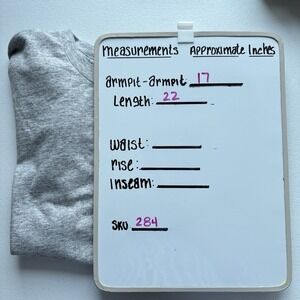 measurements Approximate Inches
armpit-armpit 17
Length: 22
waist:
rise:
Inseam:
SKU 284